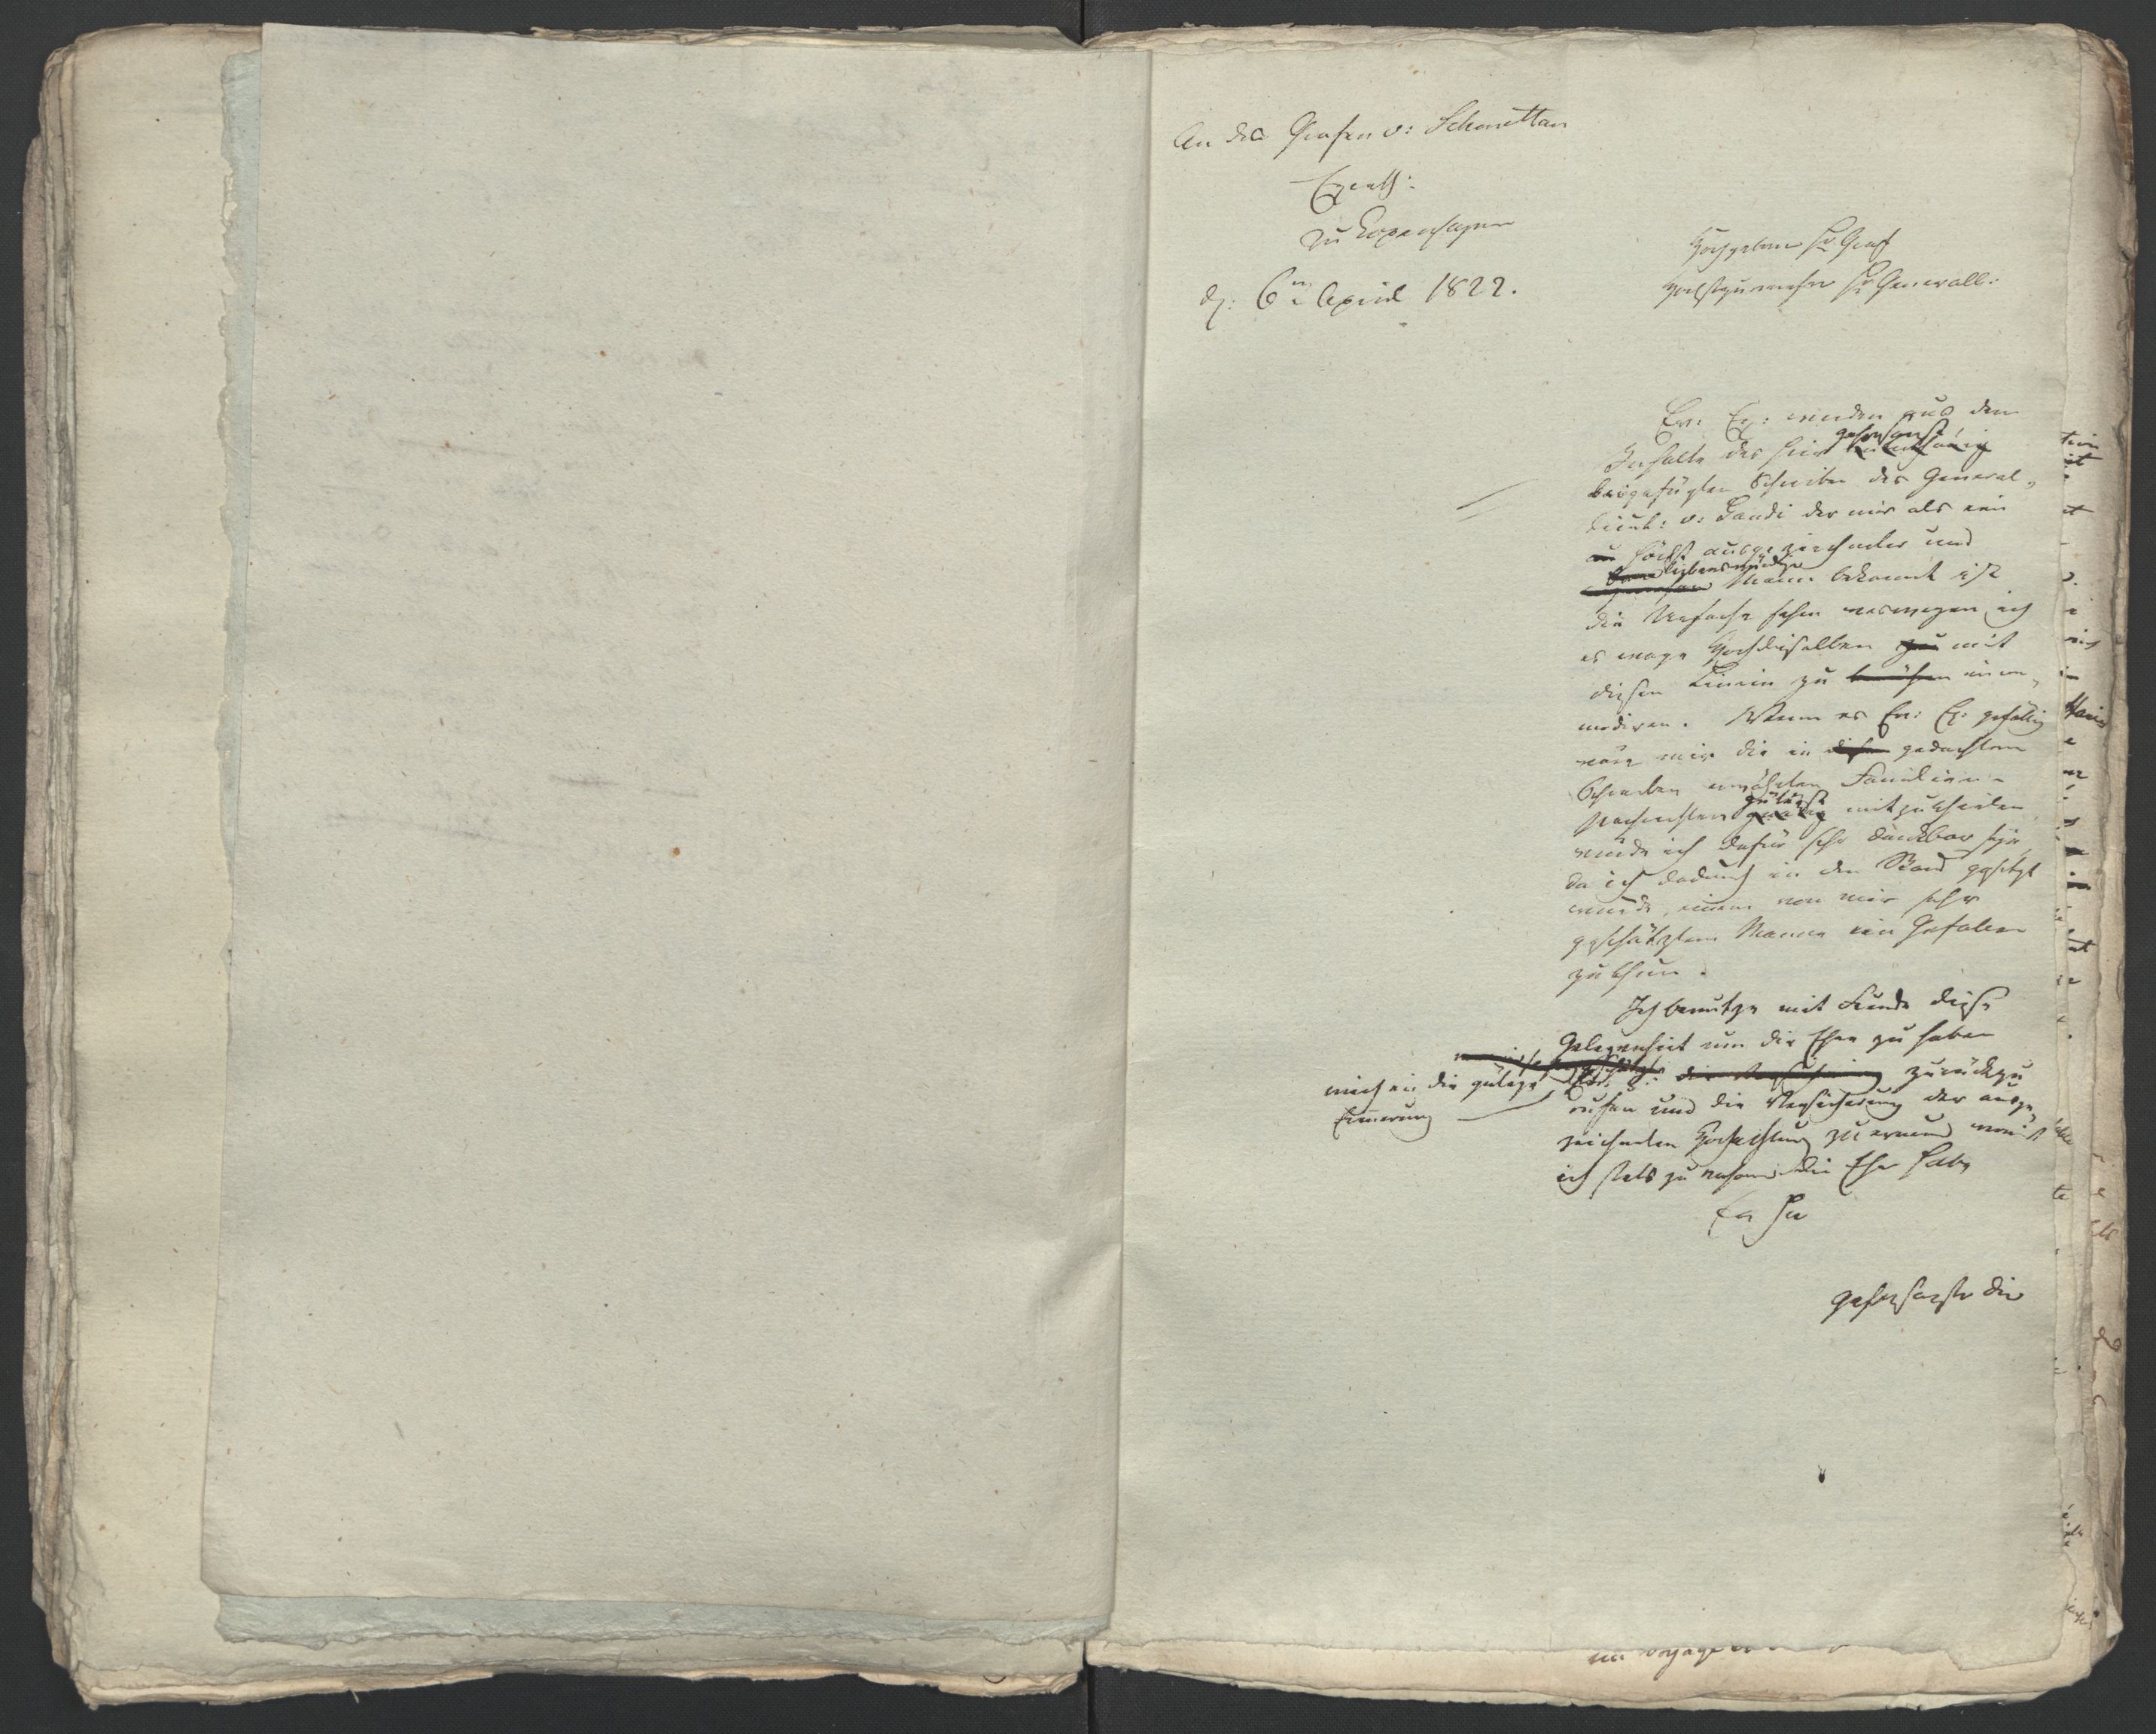 An des Grafen v: Schmettau
Excell:
zu Copenhagen
d. 6n April 1822.
Hochgeborner Hr Graf
Hochstzuverehrender Hr Generall:
Ew: Ex: werden aus dem
gehorsamst
Inhalte des hier
beigefügten Schreiben des General-
lieut: v: Gaudi der mir als ein
höchst ausgezeichneter und
liebenswürdiger
Mann bekannt ist
die Ursache sehen weswegen ich
es wage Hochdieselben zu mit
diesen Linien zu incom-
modiren. Wenn es Ew: Ex: gefällig
wäre mir die in diesem gedachtem
Schreiben erwähnten Familien-
gütigst
Nachrichten gnädig mitzutheilen,
würde ich dafür sehr dankbar seyn,
da ich dadurch in den Stand gesetzt
würde, einem von mir sehr
geschätztem Manne ein Gefallen
zu thun.
Ich benutze mit Freude diese
Gelegenheit um die Ehre zu haben
mich in die gütige Ew: E: die Versicherung zurückzu
Erinnerung
rufen und die Versicherung der ausge-
zeichneten Hochachtung zu erneuern womit
ich stets zu verharren die Ehre habe
Ew Hr
gehorsamster Die